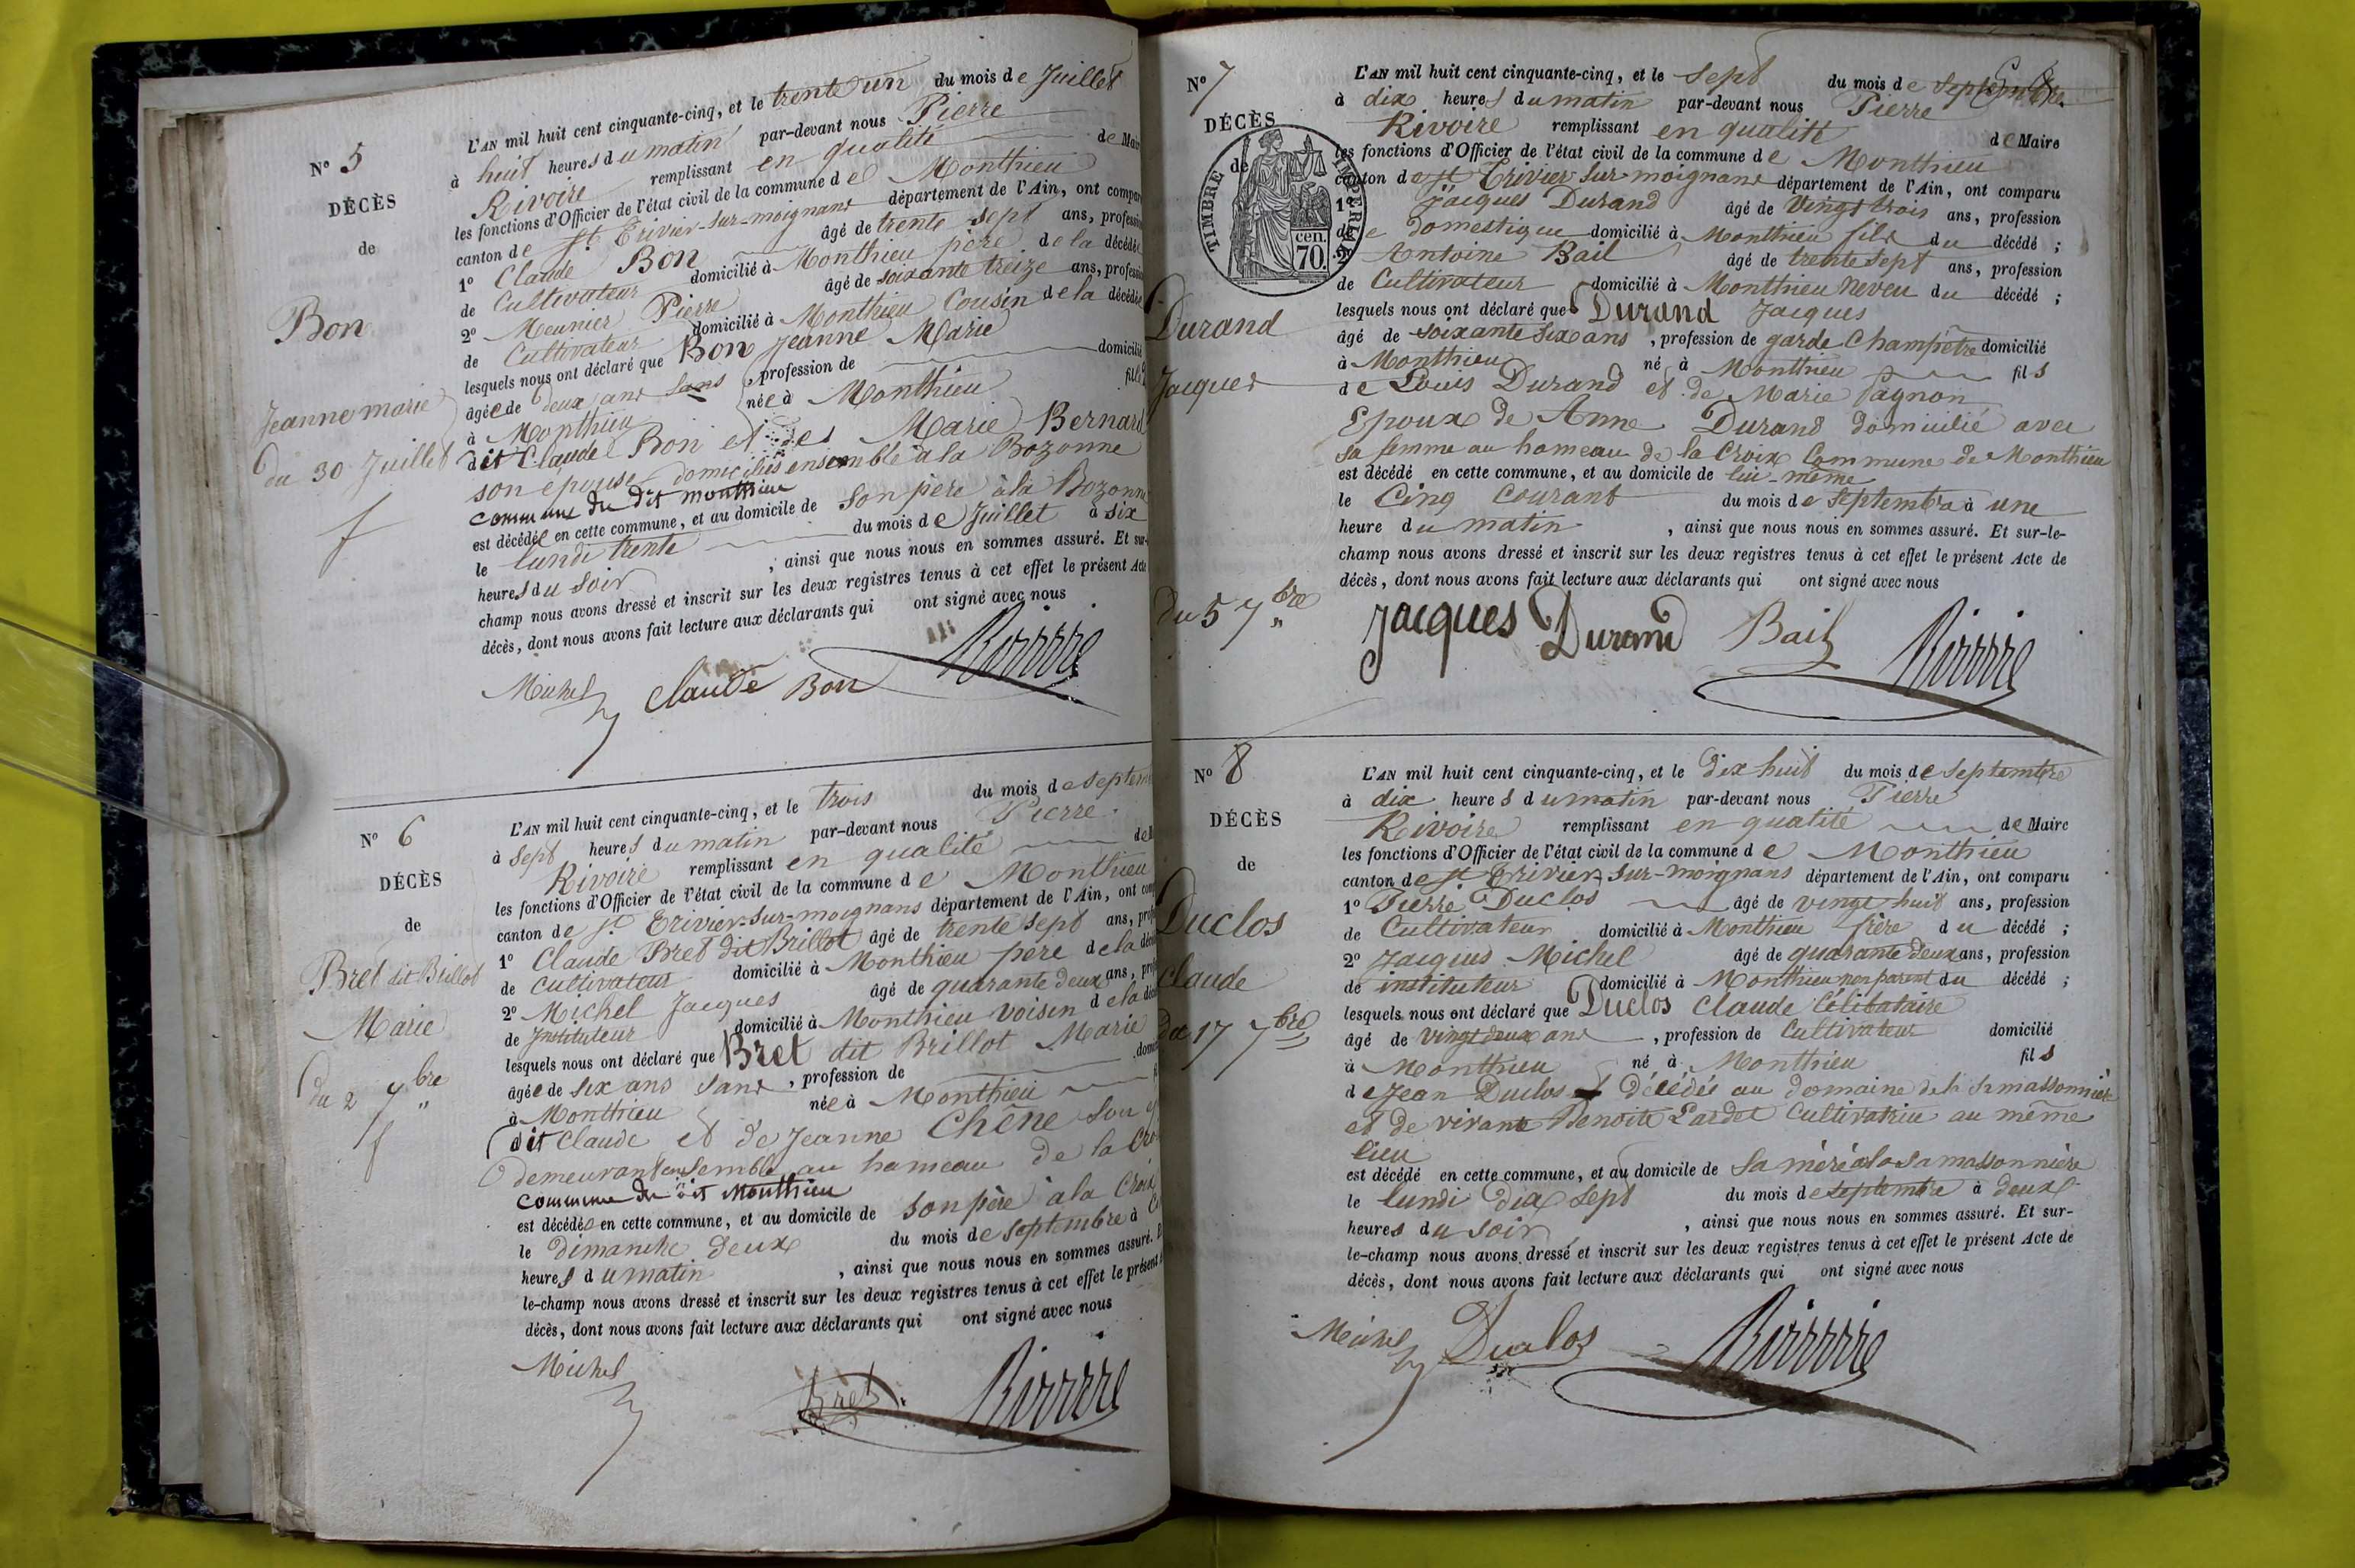 N° 5
DÉCÈS
de
Bon
Jeanne marie
du 30 Juillet
L'AN mil huit cent cinquante-cinq, et le trente un du mois de Juillet
à huit heures du matin par-devant nous Pierre
Rivoire remplissant en qualité de Mair
les fonctions d'Officier de l'état civil de la commune de Monthieu
canton de St Trivier-sur-moignans département de l'Ain, ont compar
1° Claude Bon âgé de trente sept ans, profession
de Cultivateur domicilié à Monthieu père de la décédée
2° Meunier Pierre âgé de soixante treize ans, profession
de Cultivateur domicilié à Monthieu Cousin de la décédée
lesquels nous ont déclaré que Bon Jeanne Marie
âgée de deux ans sans , profession de domicilié
à Monthieu née à Monthieu fille
dit Claude Bon et des Marie Bernard
son épouse domiciliés ensemble à la Bozonne
commune du dit monthieu
est décédée en cette commune, et au domicile de son père à la Bozonne
le lundi trente du mois de Juillet à six
heures du soir , ainsi que nous nous en sommes assuré. Et sur-
champ nous avons dressé et inscrit sur les deux registres tenus à cet effet le présent Acte
décès, dont nous avons fait lecture aux déclarants qui ont signé avec nous
Michel Claude Bon Rivoire
N° 6
DÉCÈS
de
Bret dit Brillot
Marie
du 2 7bre
L'AN mil huit cent cinquante-cinq, et le trois du mois de septem
à sept heures du matin par-devant nous Pierre
Rivoire remplissant en qualité de M
les fonctions d'Officier de l'état civil de la commune de Monthieu
canton de St Trivier-sur-moignans département de l'Ain, ont comp
1° Claude Bret dit Brillot âgé de trente sept ans, profe
de cultivateur domicilié à Monthieu père de la décé
2° Michel Jacques âgé de quarante deux ans, prof
de Instituteur domicilié à Monthieu voisin de la décé
lesquels nous ont déclaré que Bret dit Brillot Marie
âgée de six ans sans , profession de domi
à Monthieu née à Monthieu
dit Claude et de Jeanne Chêne son
demeurant ensemble au hameau de la Cro
commune du dit Monthieu
est décédée en cette commune, et au domicile de son père à la Croix
le dimanche deux du mois de septembre à
heures du matin , ainsi que nous nous en sommes assuré. E
le-champ nous avons dressé et inscrit sur les deux registres tenus à cet effet le présent
décès, dont nous avons fait lecture aux déclarants qui ont signé avec nous
Michel Bret Rivoire
N° 7
DÉCÈS
de
TIMBRE IMPERIAL
cen.
70.
Durand
Jacques
du 5 7bre
L'AN mil huit cent cinquante-cinq, et le sept du mois de septembre
à dix heures du matin par-devant nous Pierre
Rivoire remplissant en qualité de Maire
les fonctions d'Officier de l'état civil de la commune de Monthieu
canton de St Trivier-sur-moignans département de l'Ain, ont comparu
1° Jacques Durand âgé de Vingt trois ans, profession
de domestique domicilié à Monthieu fils du décédé ;
2° Antoine Bail âgé de trente sept ans, profession
de Cultivateur domicilié à Monthieu neveu du décédé ;
lesquels nous ont déclaré que Durand Jacques
âgé de soixante six ans , profession de garde Champêtre domicilié
à Monthieu né à Monthieu fils
de Louis Durand et de Marie Pagnon
Epoux de Anne Durand domicilié avec
sa femme au hameau de la Croix Commune de Monthieu
est décédé en cette commune, et au domicile de lui-même
le Cinq courant du mois de septembre à une
heure du matin , ainsi que nous nous en sommes assuré. Et sur-le-
champ nous avons dressé et inscrit sur les deux registres tenus à cet effet le présent Acte de
décès, dont nous avons fait lecture aux déclarants qui ont signé avec nous
Jacques Durand Bail Rivoire
N° 8
DÉCÈS
de
Duclos
Claude
du 17 7bre
L'AN mil huit cent cinquante-cinq, et le dix huit du mois de septembre
à dix heures du matin par-devant nous Pierre
Rivoire remplissant en qualité de Maire
les fonctions d'Officier de l'état civil de la commune de Monthieu
canton de St Trivier-sur-moignans département de l'Ain, ont comparu
1° Pierre Duclos âgé de vingt huit ans, profession
de Cultivateur domicilié à Monthieu frère du décédé ;
2° Jacques Michel âgé de quarante deux ans, profession
de instituteur domicilié à Monthieu non parent du décédé ;
lesquels nous ont déclaré que Duclos Claude Célibataire
âgé de vingt deux ans , profession de Cultivateur domicilié
à Monthieu né à Monthieu fils
de Jean Duclos décédés au domaine de la Samassonnière
et de vivante Benoite Lardet Cultivatrice au même
lieu
est décédé en cette commune, et au domicile de sa mère à la Samassonnière
le lundi dix sept du mois de septembre à deux
heures du soir , ainsi que nous nous en sommes assuré. Et sur-
le-champ nous avons dressé et inscrit sur les deux registres tenus à cet effet le présent Acte de
décès, dont nous avons fait lecture aux déclarants qui ont signé avec nous
Michel Duclos Rivoire